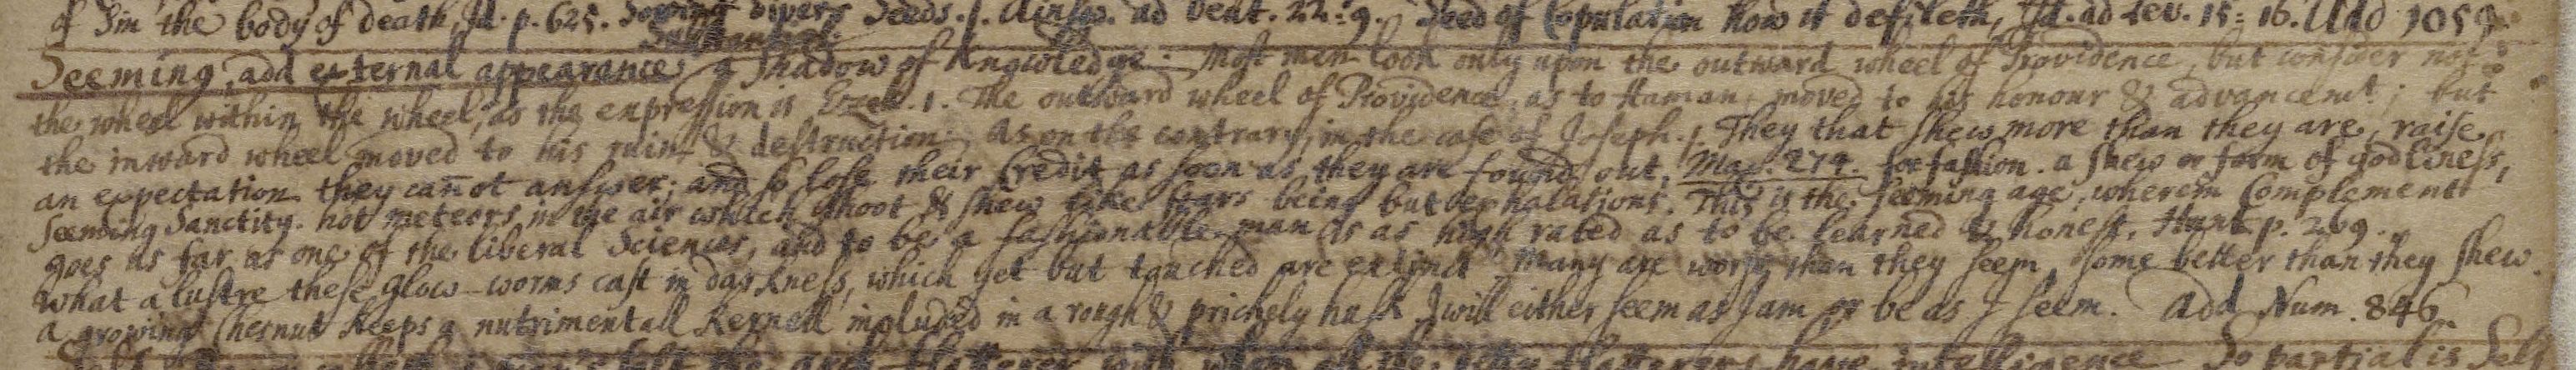 of Sin the body of death, Id. p. 625. Sowing divers Seeds. f. Ainsw. ad Deut. 22: 9. Seed of Copulation how it defileth, Id. ad Lev. 15: 16. Add 1059
Substantial.
Seeming, add external appearance, a shadow of knowledge: most men look only upon the outward wheel of Providence, but consider not
the wheel within the wheel, as the expression is Ezek. 1. The outward wheel of Providence, as to Haman, moved to his honour & advancemt; but
the inward wheel moved to his ruin & destruction. As on the contrary, in the case of Joseph. f. They that shew more than they are, raise
an expectation they can̄ot answer; and so lose their Credit as soon as they are found out. Max. 274. for fashion. a shew or form of godliness,
Seeming Sanctity. hot meteors in the air which shoot & shew like stars being but exhalations. This is the seeming age, wherein Complement
goes as far as one of the liberal Sciences, and to be a fashionable man is as high rated as to be learned & honest. p. 269.
What a lustre these glow-worms cast in darkness, which yet but touched are extinct Many are worse than they seem, some better than they shew.
a growing Chesnut keeps a nutrimentall Kernell included in a rough & prickely husk I will either seem as I am or be as I seem. Add Num. 846.
the arch-flatterer with whom all the petty flatterers have intelligence So partial is Self